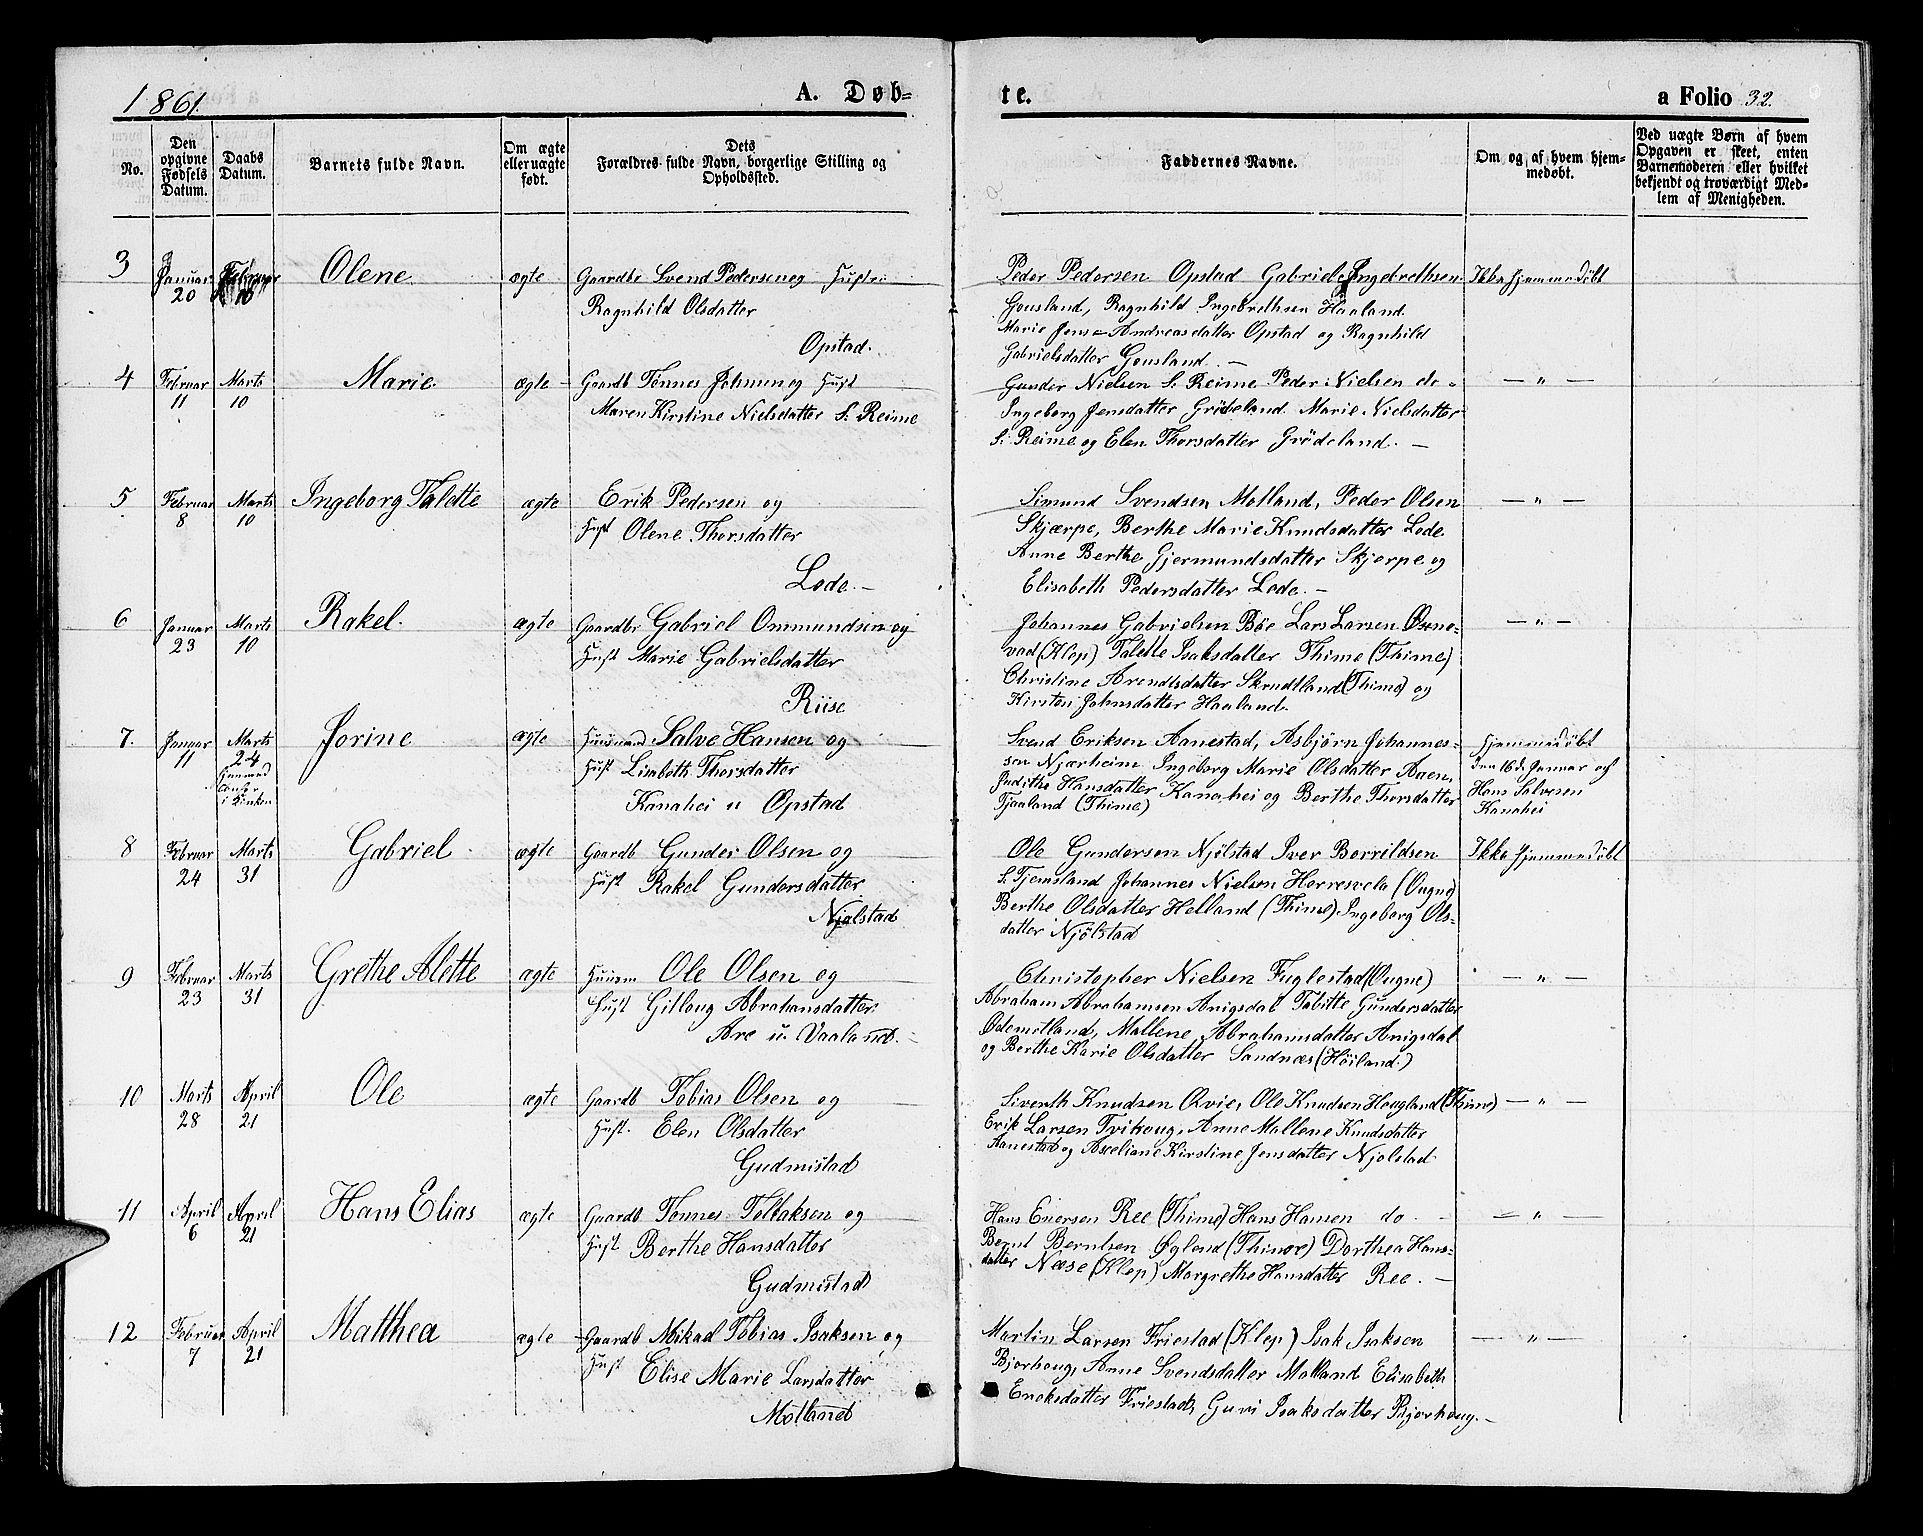 1861. A. Døb- te. a Folio 32.
No.
Den opgivne Fødsels Datum.
Daabs Datum.
Barnets fulde Navn.
Om ægte eller uægte født.
Dets Forældres fulde Navn, borgerlige Stilling og Opholdssted.
Faddernes Navne.
Om og af hvem hjem-
medøbt.
Ved uægte Børn af hvem
Opgaven er skeet, enten
Barnemoderen eller hvilket
bekjendt og troværdigt Med-
lem af Menigheden.
3 Januar 20 Februar 10 Olene ægte Gaardbr Svend Pedersen og Hustru
Ragnhild Olsdatter
Opstad.
Peder Pedersen Opstad Gabriel Ingebrethsen
Gousland, Ragnhild Ingebrethsen Haaland
Marie Jens Andreasdatter Opstad og Ragnhild
Gabrielsdatter Gousland. —
Ikke hjemmedøbt
4 Februar 11 Marts 10 Marie ægte Gaardb Tønnes Johnsen og Hust
Maren Kirstine Nielsdatter S. Reime
Gunder Nielsen S. Reime Peder Nielsen do
Ingeborg Jensdatter Grödeland. Marie Nielsdatter
S. Reime og Elen Thorsdatter Grödeland. —
— " —
5 Februar 8 Marts 10 Ingeborg Talette ægte Erik Pedersen og
Hust Olene Thorsdatter
Lode —
Simund Svendsen Molland, Peder Olsen
Skjærpe, Berthe Marie Knudsdatter Lode
Anne Berthe Gjermundsdatter Skjerpe og
Elisabeth Pedersdatter Lode. —
— " —
6 Januar 23 Marts 10 Rakel. ægte Gaardbr Gabriel Ommundsen og
Hust Marie Gabrielsdatter
Riise
Johannes Gabrielsen Böe Lars Larsen Öxne-
vad (Klep) Talette Isaksdatter Thime (Thime)
Christine Arendtsdatter Skrudtland (Thime) og
Kirsten Johnsdatter Haaland.
— " —
7. Januar 11 Marts 24 Jorine ægte Huusmand Salve Hansen og
Hust Lisabeth Thorsdatter
Kanahei u Opstad
Svend Eriksen Aanestad, Asbjörn Johannes-
sen Njærheim Ingeborg Marie Olsdatter Aaen,
Judithe Hansdatter Kanahei og Berthe Thorsdatter
Tjaaland (Thime)
Hjemmedøbt
den 16de Januar af
Hans Salvesen
Kanahei
8 Februar 24 Marts 31 Gabriel ægte Gaardb Gunder Olsen og
Hust Rakel Gundersdatter
Njølstad
Ole Gundersen Njølstad Iver Berrildsen
S. Tjemsland Johannes Nielsen Herresvela (Ougne)
Berthe Olsdatter Helland (Thime) Ingeborg Ols-
datter Njølstad
Ikke hjemmedøbt
9 Februar 23 Marts 31 Grethe Alette ægte Huusm Ole Olsen og
Hust Gitloug Abrahamsdatter
Are u. Vaaland. -
Christopher Nielsen Fuglestad (Ougne)
Abraham Abrahamsen Anigsdal Tobitte Gundersdatter
Ödemotland, Mallene Abrahamsdatter Anigsdal
og Berthe Karie Olsdatter Sandnæs (Höiland.)
— " —
10 Marts 28 April 21 Ole ægte Gaardb Tobias Olsen og
Hust. Elen Olsdatter
Gudmistad
Siverth Knudsen Qvie, Ole Knudsen Hougland (Thime)
Erik Larsen Tvihoug, Anne Mallene Knudsdatter
Aanestad og Aseliane Kirstine Jensdatter Njølstad
— " —
11 April 6 April 21 Hans Elias ægte Gaardb Tønnes Tollaksen og
Hust Berthe Hansdatter
Gudmistad
Hans Enersen Ree (Thime) Hans Hansen do. -
Bernt Berntsen Øglend (Thime) Dorthea Hans-
datter Næse (Klep) Margrethe Hansdatter Ree. —
— " —
12 Februar 7 April 21 Matthea ægte Gaardb Mikal Tobias Isaksen og
Hust Elise Marie Larsdatter
Molland
Martin Larsen Friestad (Klep) Isak Isaksen
Bjorhoug, Anne Svendsdatter Molland Elisabeth
Enoksdatter Friestad, Guri Isaksdatter Bjorhoug. —
— " —